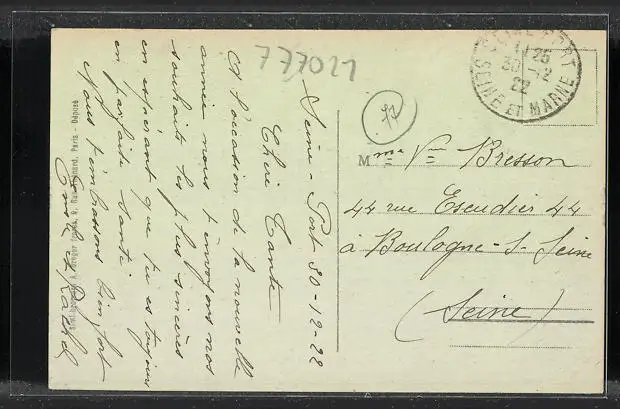 777021
Seine-Port 30-12-22
Chère Tante
A l'occasion de la nouvelle
année nous t'envoyons nos
souhaits les plus sincères
en espérant que tu es toujours
en parfaite santé
Nous t'embrassons bien fort
et Rachel
Paris - Déposé
SEINE PORT
30 -12
22
SEINE ET MARNE
77
Mme Vve Bresson
44 rue Escudier 44
à Boulogne-s-Seine
(Seine)